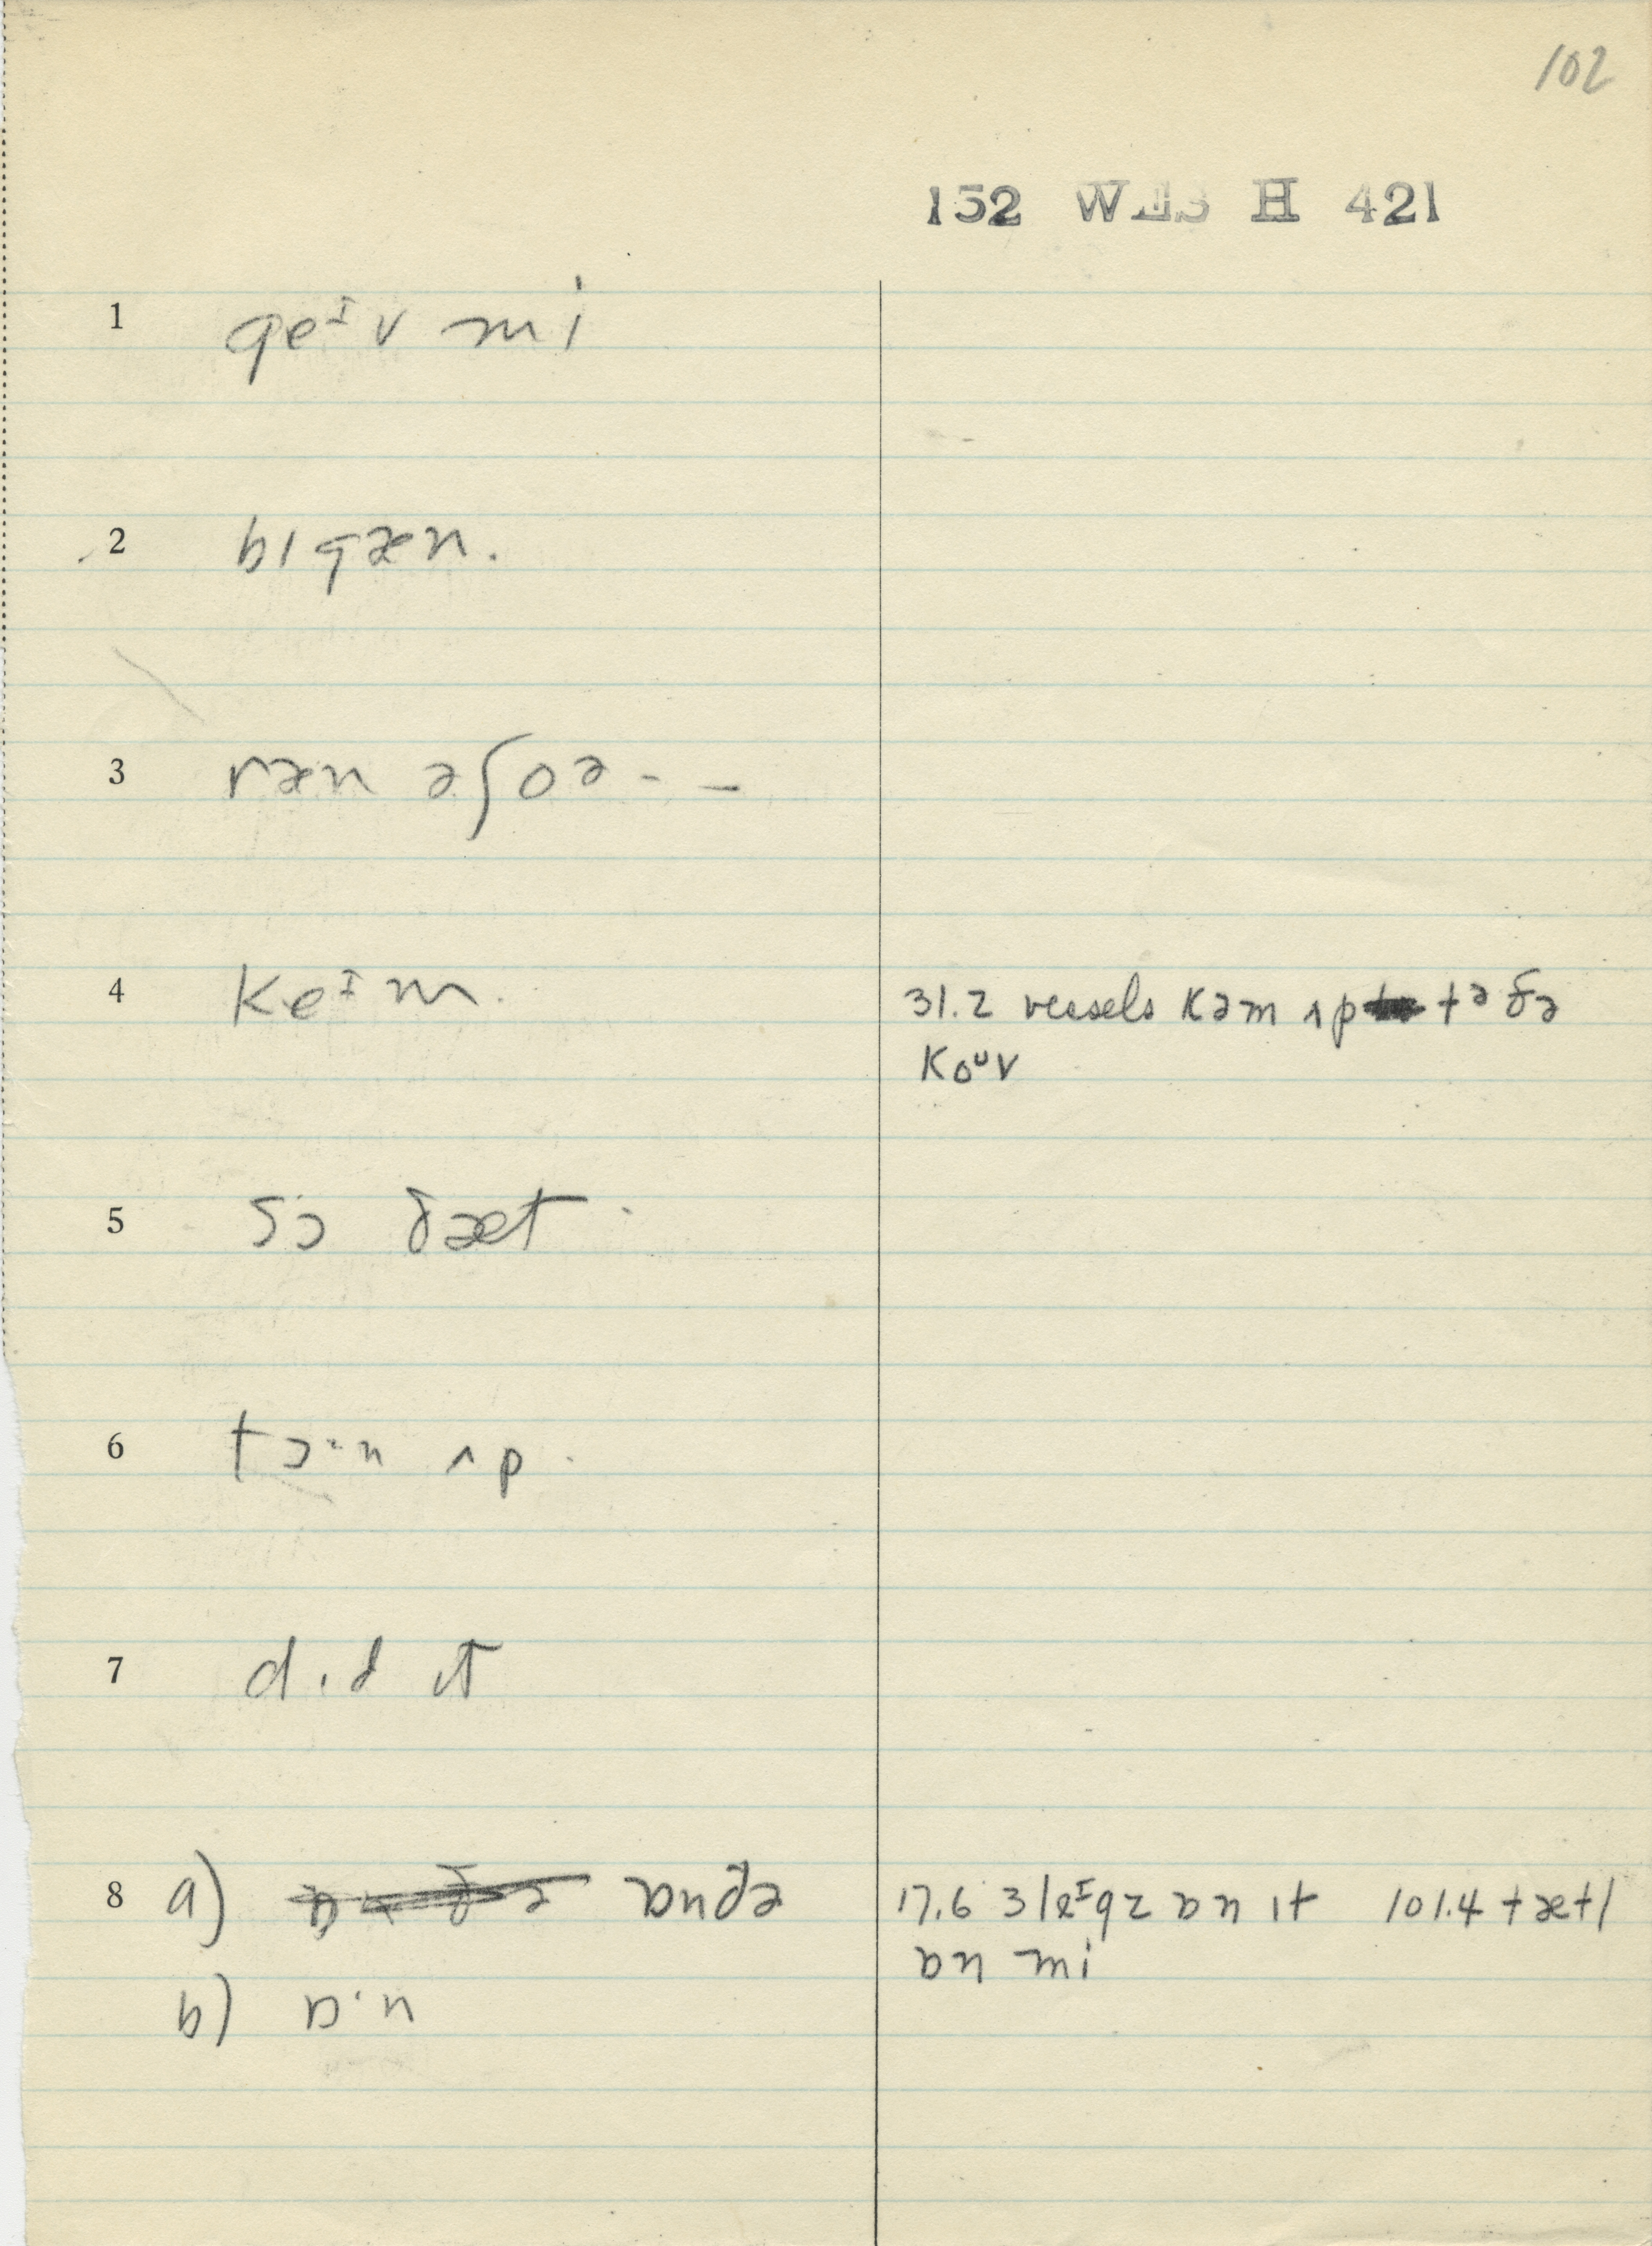 102
152 WES H 421
1 geᴵv mi
2 bɪgæn.
3 ræn əʃoə - -
4 keᴵm.
31.2 vessels kəm ʌp tə ðə
koᵁv
5 sɔ ðæt
6 tɔ·n ʌp
7 dɪd ɪt
8 a) ɒnðə
17.6 3 leᴵgz ɒn ɪt 101.4 tætl
ɒn mi
b) ɒ·n